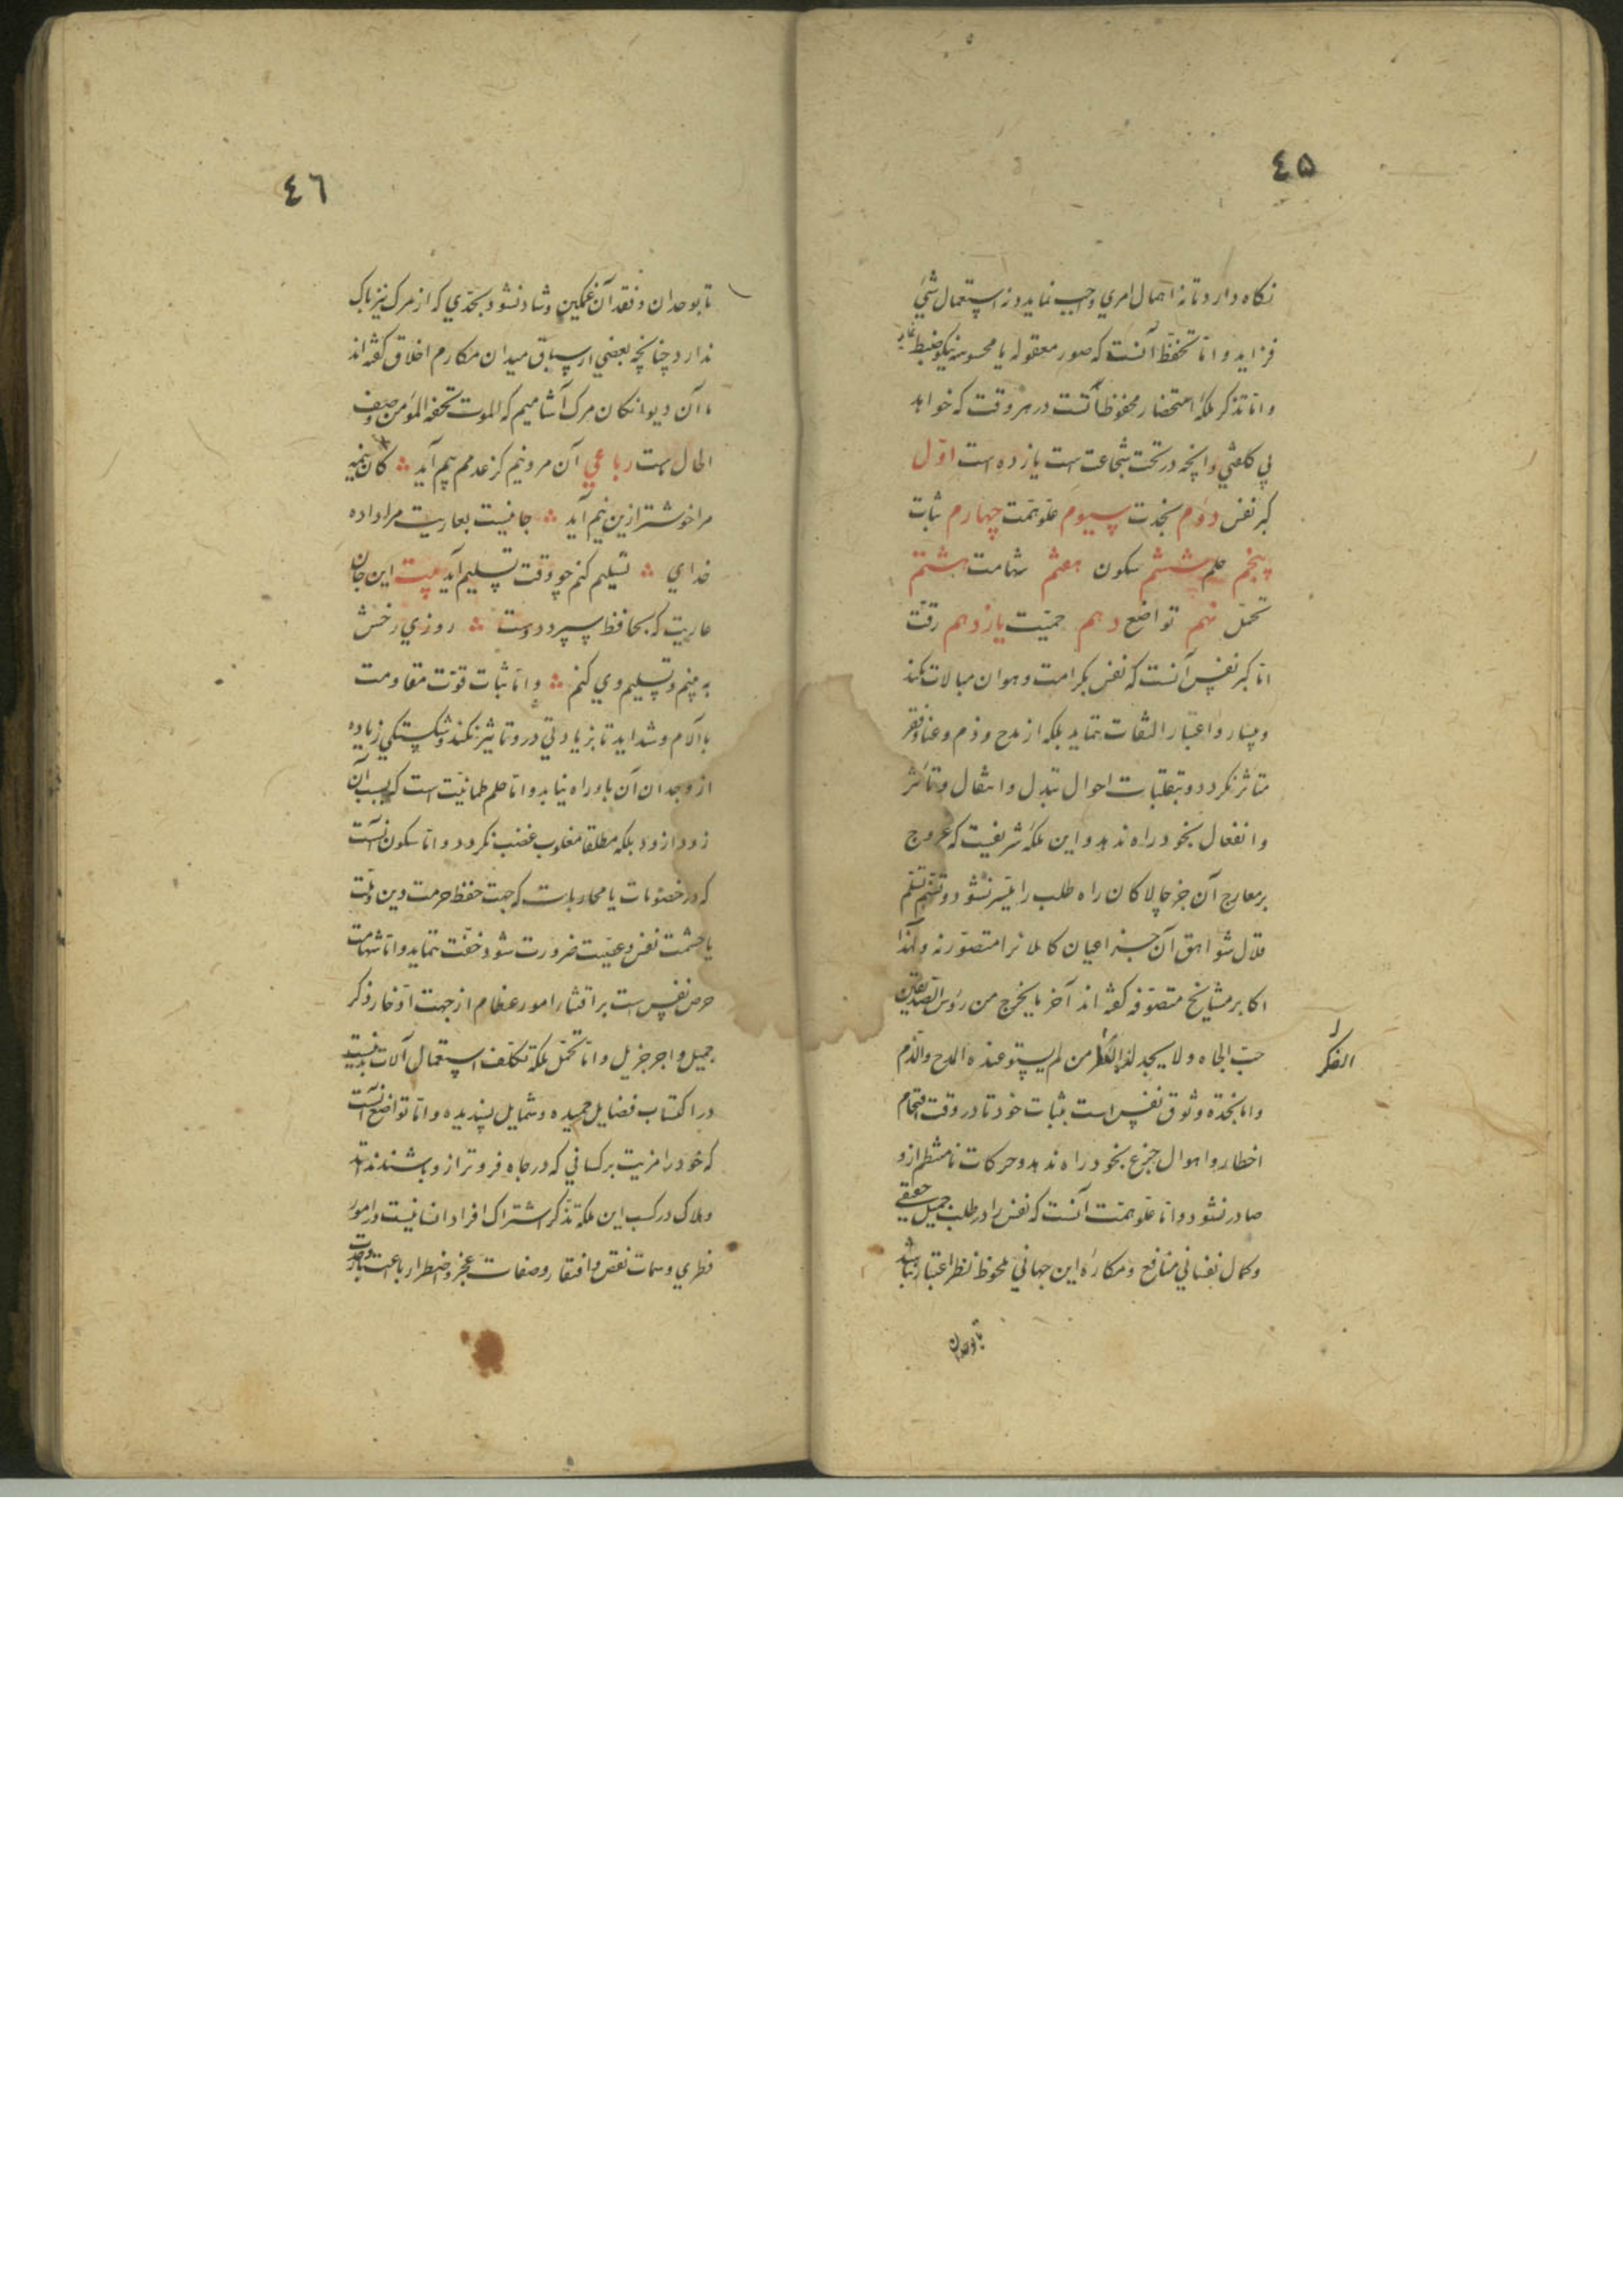 ٤٥
نکاه دارد تا نه اهمال امری واجب نماید و نه استعمال شیٔ
فزاید و امّا تحفّظ آنست که صور معقوله یا محسوسه نیکو ضبط نماید
و امّا تذکر ملکهٔ استحضار محفوظاتست در هر وقت که خواهد
بی کلفتی و آنچه در تحت شجاعت است یازده است اوّل
کبر نفس دوم نجدت سیوم علوّ همّت چهارم ثبات
پنجم حلم ششم سکون هفتم شهامت هشتم
تحمّل نهم تواضع دهم حمیّت یازدهم رقّت
امّا کبر نفس آنست که نفس بکرامت و هوان مبالات نکند
و بیسار و اعتبار التفات ننماید بلکه از مدح و ذم و غنا و فقر
متأثر نکردد و بتقلبات احوال تبدل و انتقال و تأثر
و انفعال بخود راه ندهد و این ملکهٔ شریفیست که عروج
بر معارج آن جز چالاکان راه طلب را میّسر نشود و تسنّم
قلال شواهق آن جز اعیان کاملانرا متصوّر نه و لهذا
اکابر مشایخ متصوّفه کفته اند آخر ما یخرج من رؤس الصدّیقین
حبّ الجاه و لا یجد لذایذ من لم یستو عنده المدح و الذّم
الفکر
و اما نجدة وثوق نفس است بثبات خود تا در وقت اقتحام
اخطار و اهوال جزع بخود راه ندهد و حرکات نامنتظم ازو
صادر نشود و امّا علوّ همّت آنست که نفس را در طلب جمیل حقیقی
و کمال نفسانی منافع و مکاره این جهانی ملحوظ نظر اعتبار نباشد
تا بوجدان
٤٦
تا بوجدان و فقدان آن غمکین و شاد نشود بحدّی که از مرک نیز باک
ندارد چنانچه بعضی از سبّاق میدان مکارم اخلاق کفته اند
ما آن دیوانکان مرک آشامیم که الموت تحفة المؤمن وصف
الحال است رباعی آن مرد نیم کز عدمم بیم آید کان نیمه
مرا خوشتر ازین نیم آید جانیست بعاریت مرا داده
خدای تسلیم کنم چو وقت تسلیم آید بیت این جان
عاریت که بحافظ سپرد دوست روزی رخش
به بینم و تسلیم وی کنم و امّا ثبات قوّت مقاومت
با آلام و شداید تا بزیادتی درو تاثیر نکند و شکستکی زیاده
از وجدان آن باو راه نیابد و امّا حلم طمانیّت است که بسبب آن
زود از زود بلکه مطلقا مغلوب غضب نکردد و امّا سکون آنست
که در خصومات یا محاربات که جهت حفظ حرمت دین و ملّت
یا حشمت نفس و عیّت ضرورت شود خفّت ننماید و امّا شهامت
حرص نفس است بر اقتناء امور عظام از جهت ادّخار ذکر
جمیل و اجر جزیل و امّا تحمّل ملکهٔ تکلّف استعمال آلات بدنیست
در اکتساب فضایل حمیده و شمایل پسندیده و امّا تواضع آنست
که خود را مزیت بر کسانی که در جاه فروتر ازو باشند ننهد
و ملاک در کسب این ملکه تذکر اشتراک افراد انسانیست در امور
فطری و سمات نقص و افتقار و صفات عجز و اضطرار باعتبار وحدت